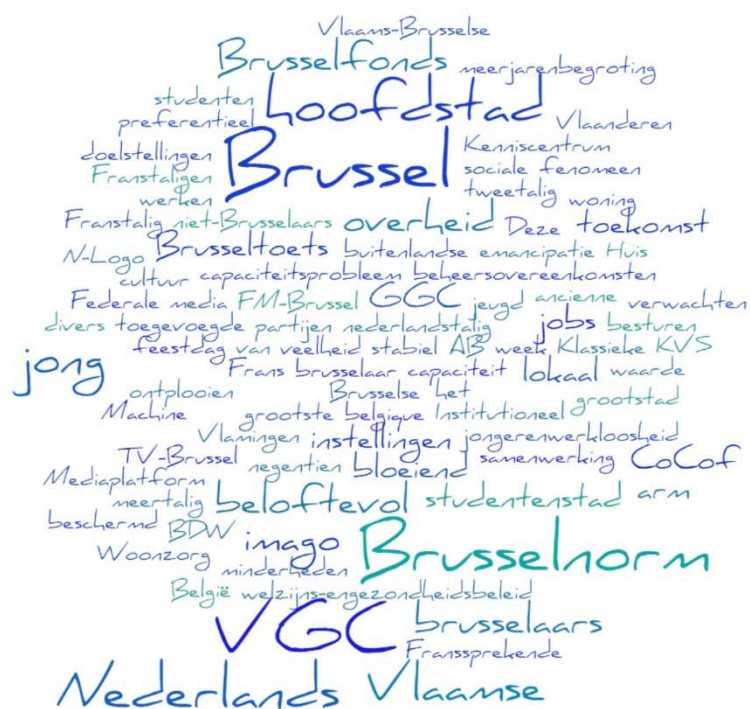 Vlaams-Brusselse
Brusselfonds meerjarenbegroting
studenten hoofdstad
preferentieel Vlaanderen
doelstellingen Brussel Kenniscentrum
Franstaligen sociale fenomeen
werken tweetalig woning
Franstalig niet-Brusselaars overheid Deze toekomst
N-Logo Brusseltoets buitenlandse emancipatie Huis
cultuur capaciteitsprobleem beheersovereenkomsten
Federale media FM-Brussel GGC jeugd ancienne verwachten
divers toegevoegde partijen nederlandstalig jobs besturen
feestdag van veelheid stabiel AB week Klassieke KVS
jong Frans brusselaar capaciteit lokaal waarde
ontplooien Brusselse het grootstad
Machine grootste belgique Institutioneel
Vlamingen instellingen jongerenwerkloosheid
TV-Brussel negentien bloeiend samenwerking CoCof
Mediaplatform
meertalig beloftevol studentenstad arm
beschermd BDW
Woonzorg imago Brusselnorm
minderheden
België welzijns-engezondheidsbeleid
VGC brusselaars
Franssprekende
Nederlands Vlaamse